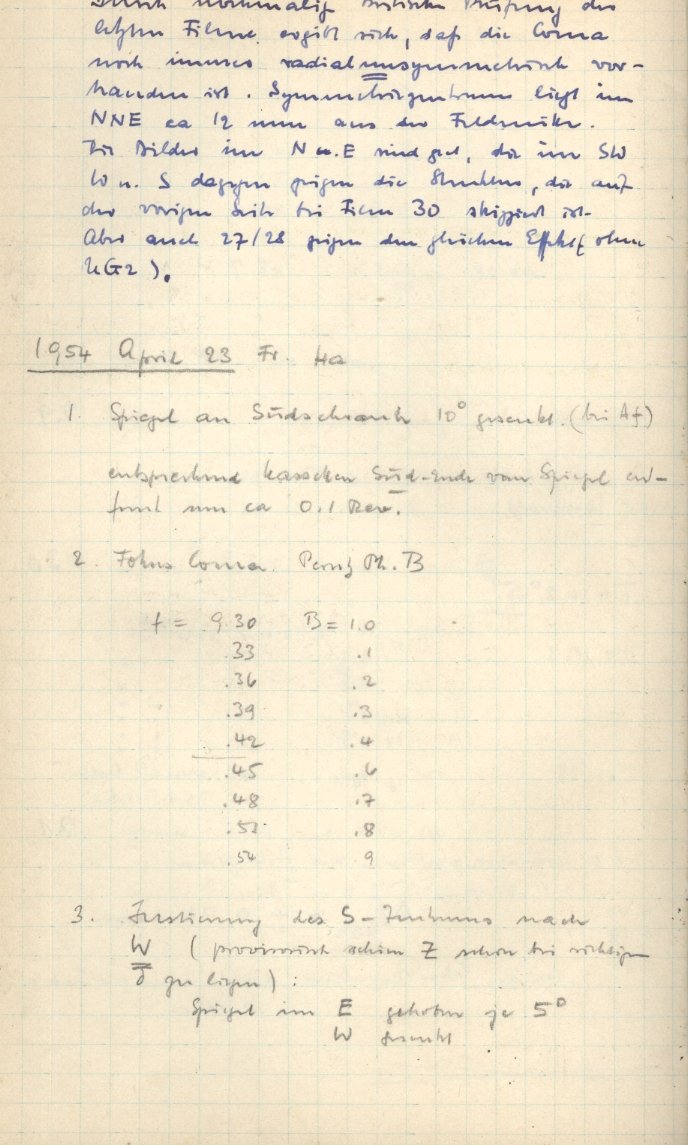 Durch nochmalig kritische Prüfung der
letzten Filme ergibt sich, daß die Coma
noch immer radial unsymmetrisch vor-
handen ist. Symmetriezentrum liegt im
NNE ca 12 mm aus der Feldmitte.
Die Bilder im N u. E sind gut, die im SW
W u. S dagegen zeigen die Struktur, die auf
der vorigen Seite bei Film 30 skizziert ist.
Aber auch 27/28 zeigen den gleichen Effekt (ohne
UG2).
1954 April 23 Fr. Ha
1. Spiegel an Südschraube 10° gesenkt. (bei Af)
entsprechend Süd-Ende vom Spiegel ent-
fernt um ca 0.1 Rev.
2. Fokus Coma. Ph. B
f = 9.30 B = 1.0
.33 .1
.36 .2
.39 .3
.42 .4
.45 .6
.48 .7
.51 .8
.54 .9
3. Justierung des S-Zentrums nach
W (provisorisch schien Z schon bei richtigem
δ zu liegen):
Spiegel im E gehoben je 5°
W gesenkt